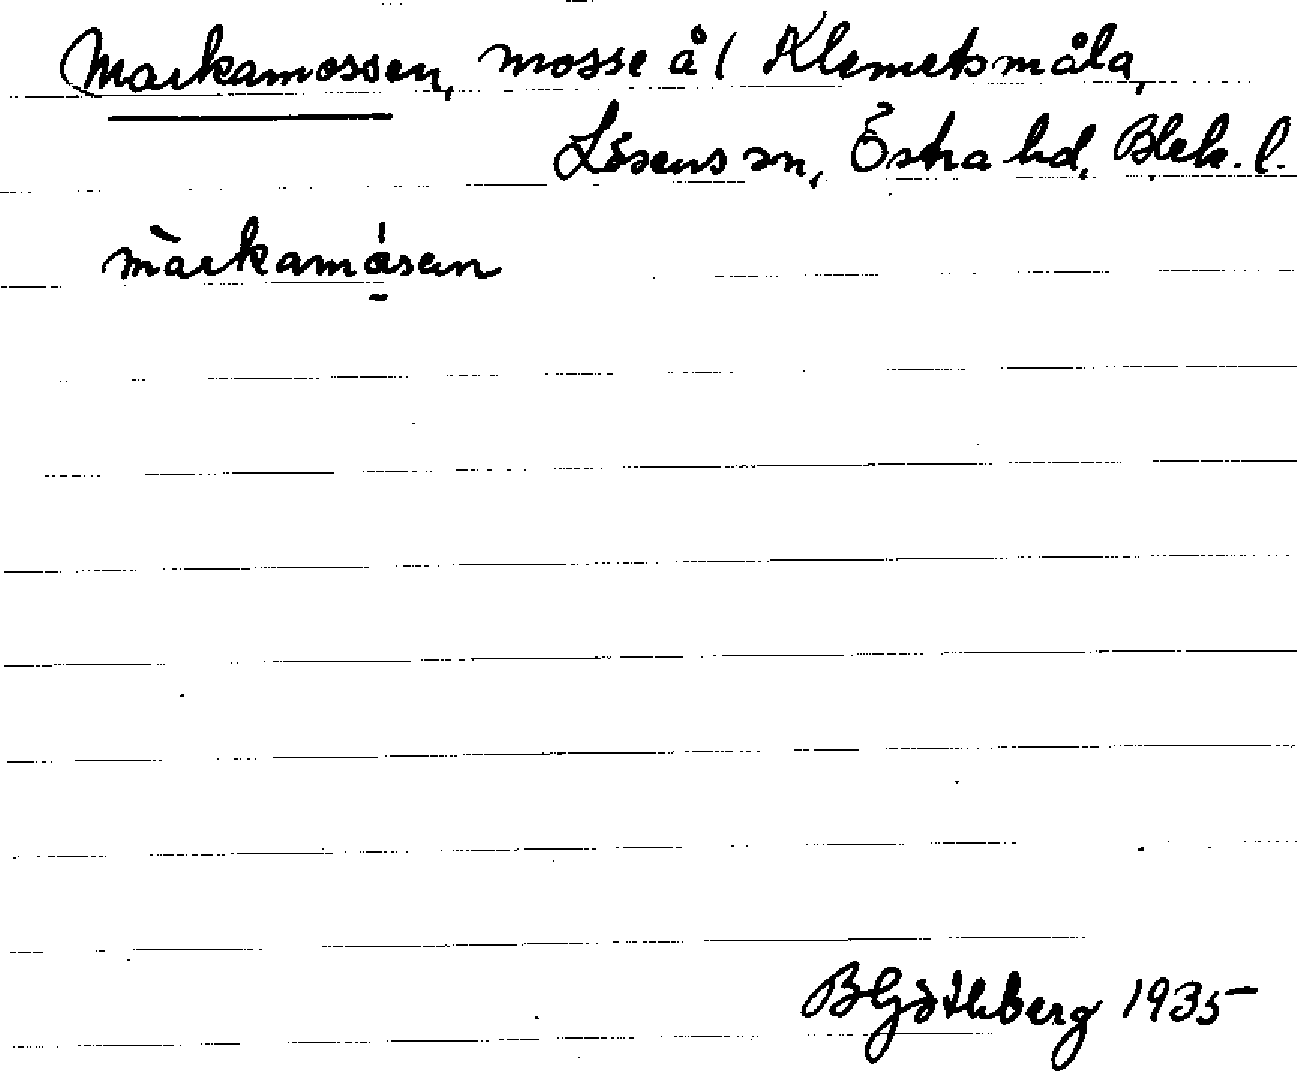 Markamossen, mosse å / Klemetsmåla,
Lösens sn, Östra hd, Blek. l.
màrkamåsen
B Göthberg 1935